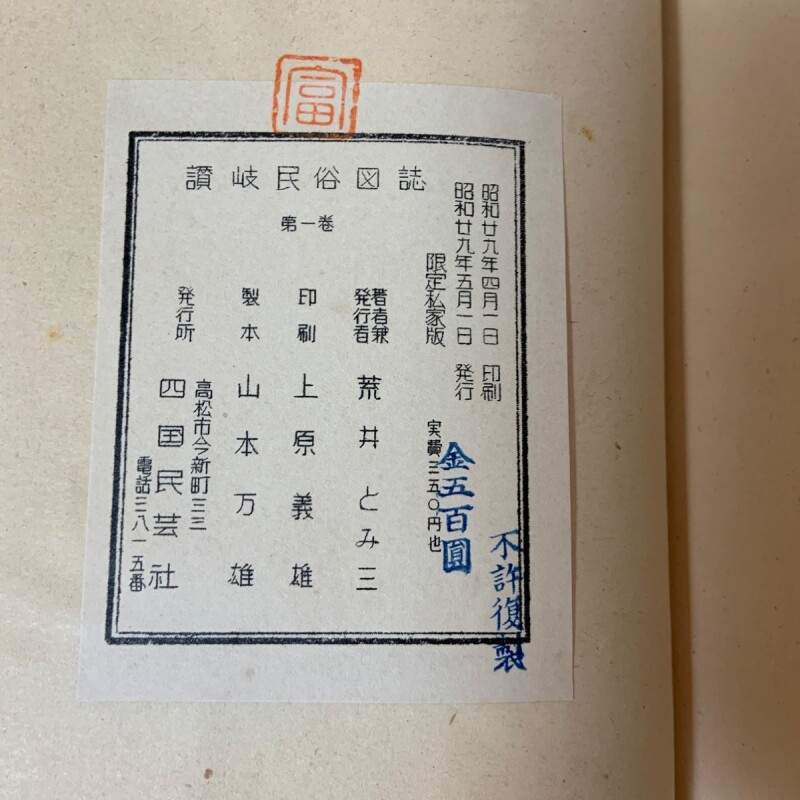 富
讃岐民俗図誌
第一巻
昭和廿九年四月一日 印刷
昭和廿九年五月一日 発行
限定私家版 実費三五〇,円也
金五百圓
不許復製
著者兼
発行者 荒井とみ三
印刷 上原義雄
製本 山本万雄
高松市今新町三三
発行所 四国民芸社
電話三八一五番